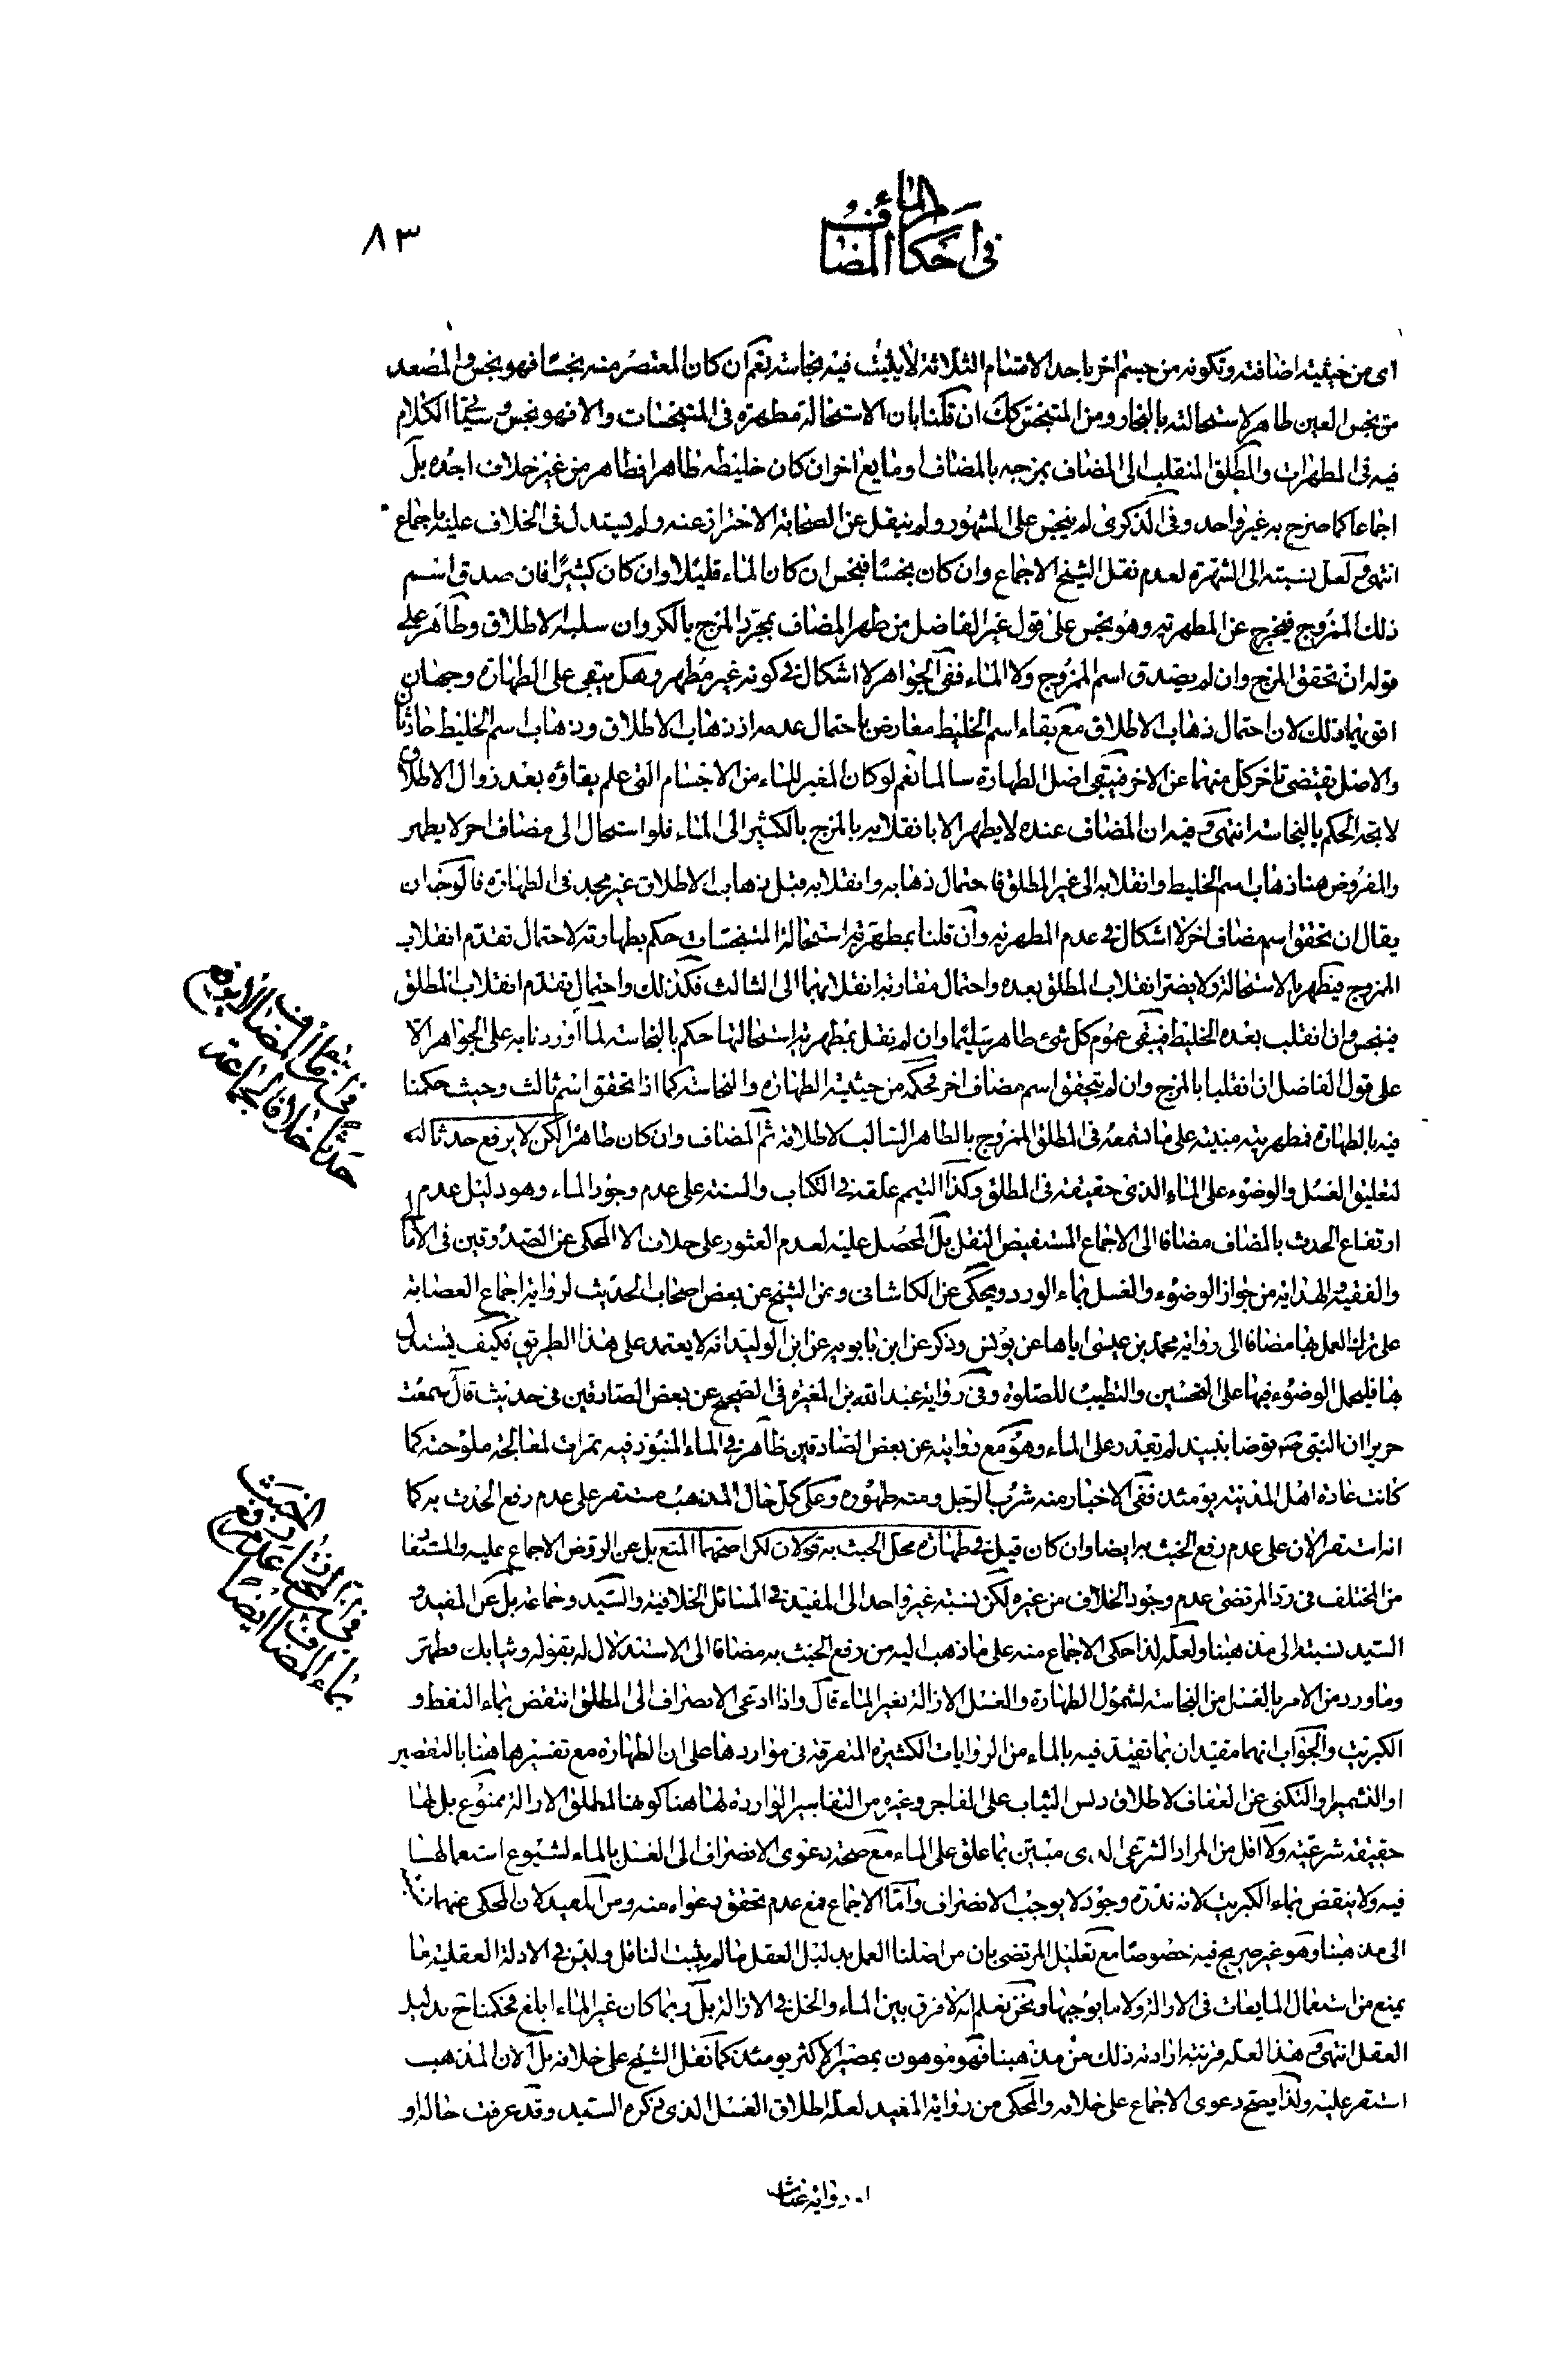 في احكام الماء المضاف
٨٣
اى من حيثية اضافته وتكونه من جسم اخر باحد الاقسام الثلاثة لا يثبت فيه نجاسة نعم ان كان المعتصر منه نجسًا فهو نجس والمصعد
من نجس العين طاهر لاستحالته بالبخار ومن المتنجس كك ان قلنا بان الاستحالة مطهرة فى المتنجسات والا فهو نجس وسيجئ الكلام
فيه فى المطهرات والمطلق المنقلب الى المضاف بمزجه بالمضاف او مايع اخر ان كان خليطه طاهرا فطاهر من غير خلاف اجده بل
اجماعا كما صرح به غير واحد وفى الذكرى لم ينجس على المشهور ولم ينقل عن الصحابة الاحتراز عنه ولم يستدل فى الخلاف عليه باجماع
انتهى ولعل نسبته الى الشهرة لعدم نقل الشيخ الاجماع وان كان نجسًا فنجس ان كان الماء قليلا وان كان كثيرًا فان صدق اسم
ذلك الممزوج فيخرج عن المطهرية وهو نجس على قول غير الفاضل من طهر المضاف بمجرد المزج بالكر وان سلبه الاطلاق وطاهر على
قوله ان تحقق المزج وان لم يصدق اسم الممزوج ولا الماء ففى الجواهر لا اشكال في كونه غير مطهر وهل يبقى على الطهارة وجهان
اقويهما ذلك لان احتمال ذهاب الاطلاق مع بقاء اسم الخليط معارض باحتمال عدمه اذ ذهاب الاطلاق وذهاب اسم الخليط حادثان
والاصل يقتضى تاخر كل منهما عن الاخر فيبقى اصل الطهارة سالما نعم لو كان المغير للماء من الاجسام التى علم بقاؤه بعد زوال الاطلاق
لاتجه الحكم بالنجاسة انتهى وفيه ان المضاف عنده لا يطهر الا بانقلابه بالمزج بالكثير الى الماء فلو استحال الى مضاف اخر لا يطهر
والمفروض هنا ذهاب اسم الخليط وانقلابه الى غير المطلق فاحتمال ذهابه وانقلابه قبل ذهاب الاطلاق غير مجد فى الطهارة فالوجه ان
يقال ان تحقق اسم مضاف اخر لا اشكال في عدم المطهرية وان قلنا بمطهرية استحالة المتنجسات حكم بطهارته لاحتمال تقدم انقلاب
الممزوج فيطهر بالاستحالة ولا يضر انقلاب المطلق بعده واحتمال مقارنة انقلابهما الى الثالث فكذلك واحتمال تقدم انقلاب المطلق
فينجس وان انقلب بعده الخليط فيبقى عموم كل شئ طاهر سليما وان لم نقل بمطهرية استحالتها حكم بالنجاسة لما اوردنا به على الجواهر الا
على قول الفاضل ان انقلبا بالمزج وان لم يتحقق اسم مضاف اخر فحكمه من حيثية الطهارة والنجاسة كما اذا تحقق اسم ثالث وحيث حكمنا
فيه بالطهارة فمطهريته مبنية على ما تسمعه فى المطلق الممزوج بالطاهر السالب لاطلاقه ثم المضاف وان كان طاهرا لكن لا يرفع حدثا لته
لتعليق الغسل والوضوء على الماء الذى حقيقته فى المطلق وكذا التيمم علقه في الكتاب والسنة على عدم وجود الماء وهو دليل عدم
ارتفاع الحدث بالمضاف مضافا الى الاجماع المستفيض النقل بل المحصل عليه لعدم العثور على خلاف الا المحكى عن الصدوقين فى الامالى
والفقيه والهداية من جواز الوضوء والغسل بماء الورد ويحكى عن الكاشانى وعن الشيخ عن بعض اصحاب الحديث لرواية اجماع العصابة
على ترك العمل بها مضافا الى رواية محمد بن عيسى اياها عن يونس وذكر عن ابن بابويه عن ابن الوليد انه لا يعتمد على هذا الطريق فكيف يستدل
بها فليحمل الوضوء فيها على التحسين والتطيب للصلوة وفى رواية عبد الله بن المغيرة فى الصحيح عن بعض الصادقين فى حديث قال سمعت
حريزا ان النبى ص توضا بنبيذ لم تعتبر على الماء وهو مع روايته عن بعض الصادقين ظاهر في الماء المنبوذ فيه تمرات لمعالجة ملوحته كما
كانت عادة اهل المدينة يومئذ ففى الاخبار منه شرب الرجل ومنه طهوره وعلى كل حال المذهب مستقر على عدم رفع الحدث به كما
انه استقر الان على عدم رفع الخبث به ايضا وان كان قيل في طهارة محل الخبث به قولان لكن اصحهما المنع بل عن الروض الاجماع عليه والمستفاد
من المختلف فى رد المرتضى عدم وجود الخلاف من غيره لكن نسبه غير واحد الى المفيد في المسائل الخلافية والسيد وجماعة بل عن المفيد و
السيد نسبته الى مذهبنا ولعله لذا حكى الاجماع منه على ما ذهب اليه من رفع الخبث به مضافا الى الاستدلال له بقوله وثيابك فطهر
وما ورد من الامر بالغسل من النجاسة لشمول الطهارة والغسل الازالة بغير الماء قال واذا ادعى الانصراف الى المطلق انتقض بماء النفط و
الكبريت والجواب انهما مقيدان بما تقيد فيه بالماء من الروايات الكثيرة المتفرقة فى مواردها على ان الطهارة مع تفسيرها هنا بالتقصير
او التشمير او التكنى عن العفاف لاطلاق دنس الثياب على الفاجر وغيره من التفاسير الواردة لها هنا كونها لمطلق الازالة ممنوع بل لها
حقيقة شرعية ولا اقل من المراد الشرعى الذى مبين بما علق على الماء مع صحة دعوى الانصراف الى الغسل بالماء لشيوع استعمالها
فيه ولا ينقض بماء الكبريت لانه ندرة وجود لا يوجب الانصراف واما الاجماع فمع عدم تحقق دعواه منه ومن المفيد لان المحكى عنهما
الى مذهبنا وهو غير صريح فيه خصوصا مع تعليل المرتضى بان من اصلنا العمل بدليل العقل ما لم يثبت الناقل وليس في الادلة العقلية ما
يمنع من استعمال المايعات فى الازالة ولا ما يوجبها ونحن نعلم انه لا فرق بين الماء والخل في الازالة بل ربما كان غير الماء ابلغ فحكمنا ح بدليل
العقل انتهى وهذا لعله قرينة ارادته ذلك من مذهبنا فهو موهون بمصير الاكثر يومئذ كما نقل الشيخ على خلافه بل الان المذهب
استقر عليه ولذا يصح دعوى الاجماع على خلافه والمحكى من رواية المفيد لعله اطلاق الغسل الذى ذكره السيد وقد عرفت حاله او
في ان المضاف لا يرفع
حدثا خلافا لجماعة
في عدم رفع الخبث
بماء المضاف ايضا
١- رواية غياث